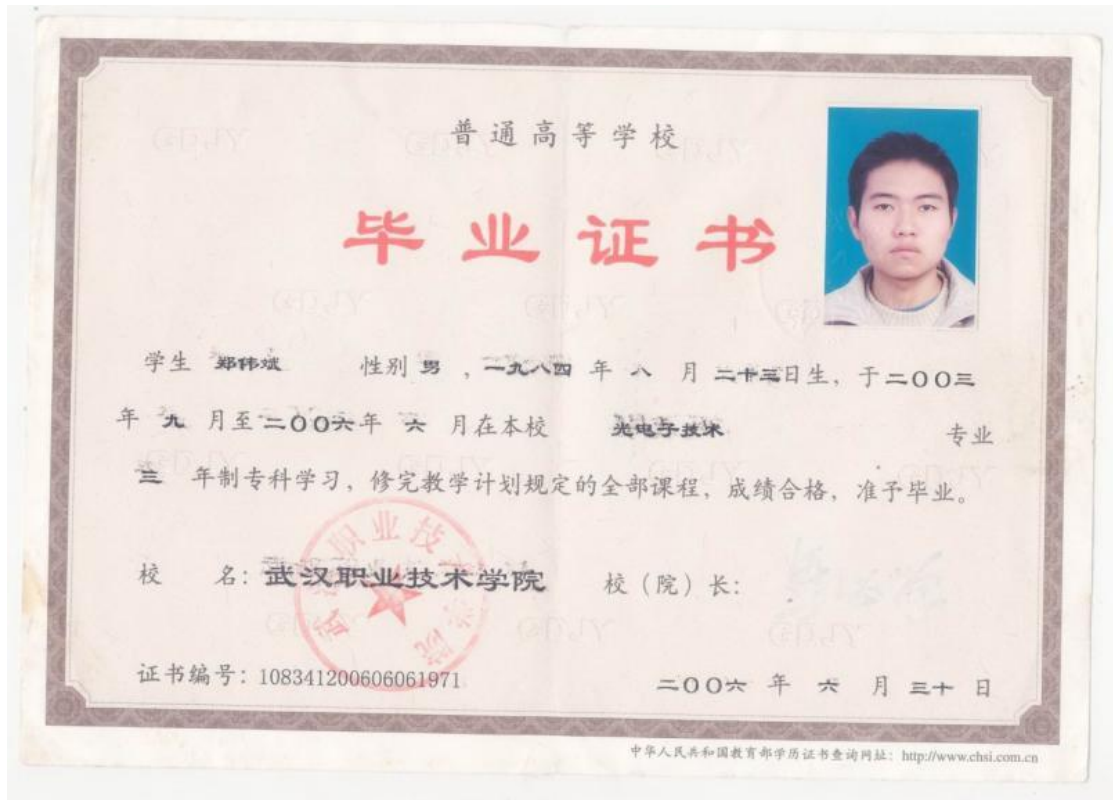 普通高等学校
毕业证书
学生 郑伟斌 性别 男，一九八四年 八 月 二十三日生，于二〇〇三
年 九 月至二〇〇六年 六 月在本校 光电子技术 专业
三 年制专科学习，修完教学计划规定的全部课程，成绩合格，准予毕业。
校 名：武汉职业技术学院 校（院）长：
证书编号：108341200606061971 二〇〇六 年 六 月 三十 日
中华人民共和国教育部学历证书查询网址：http://www.chsi.com.cn